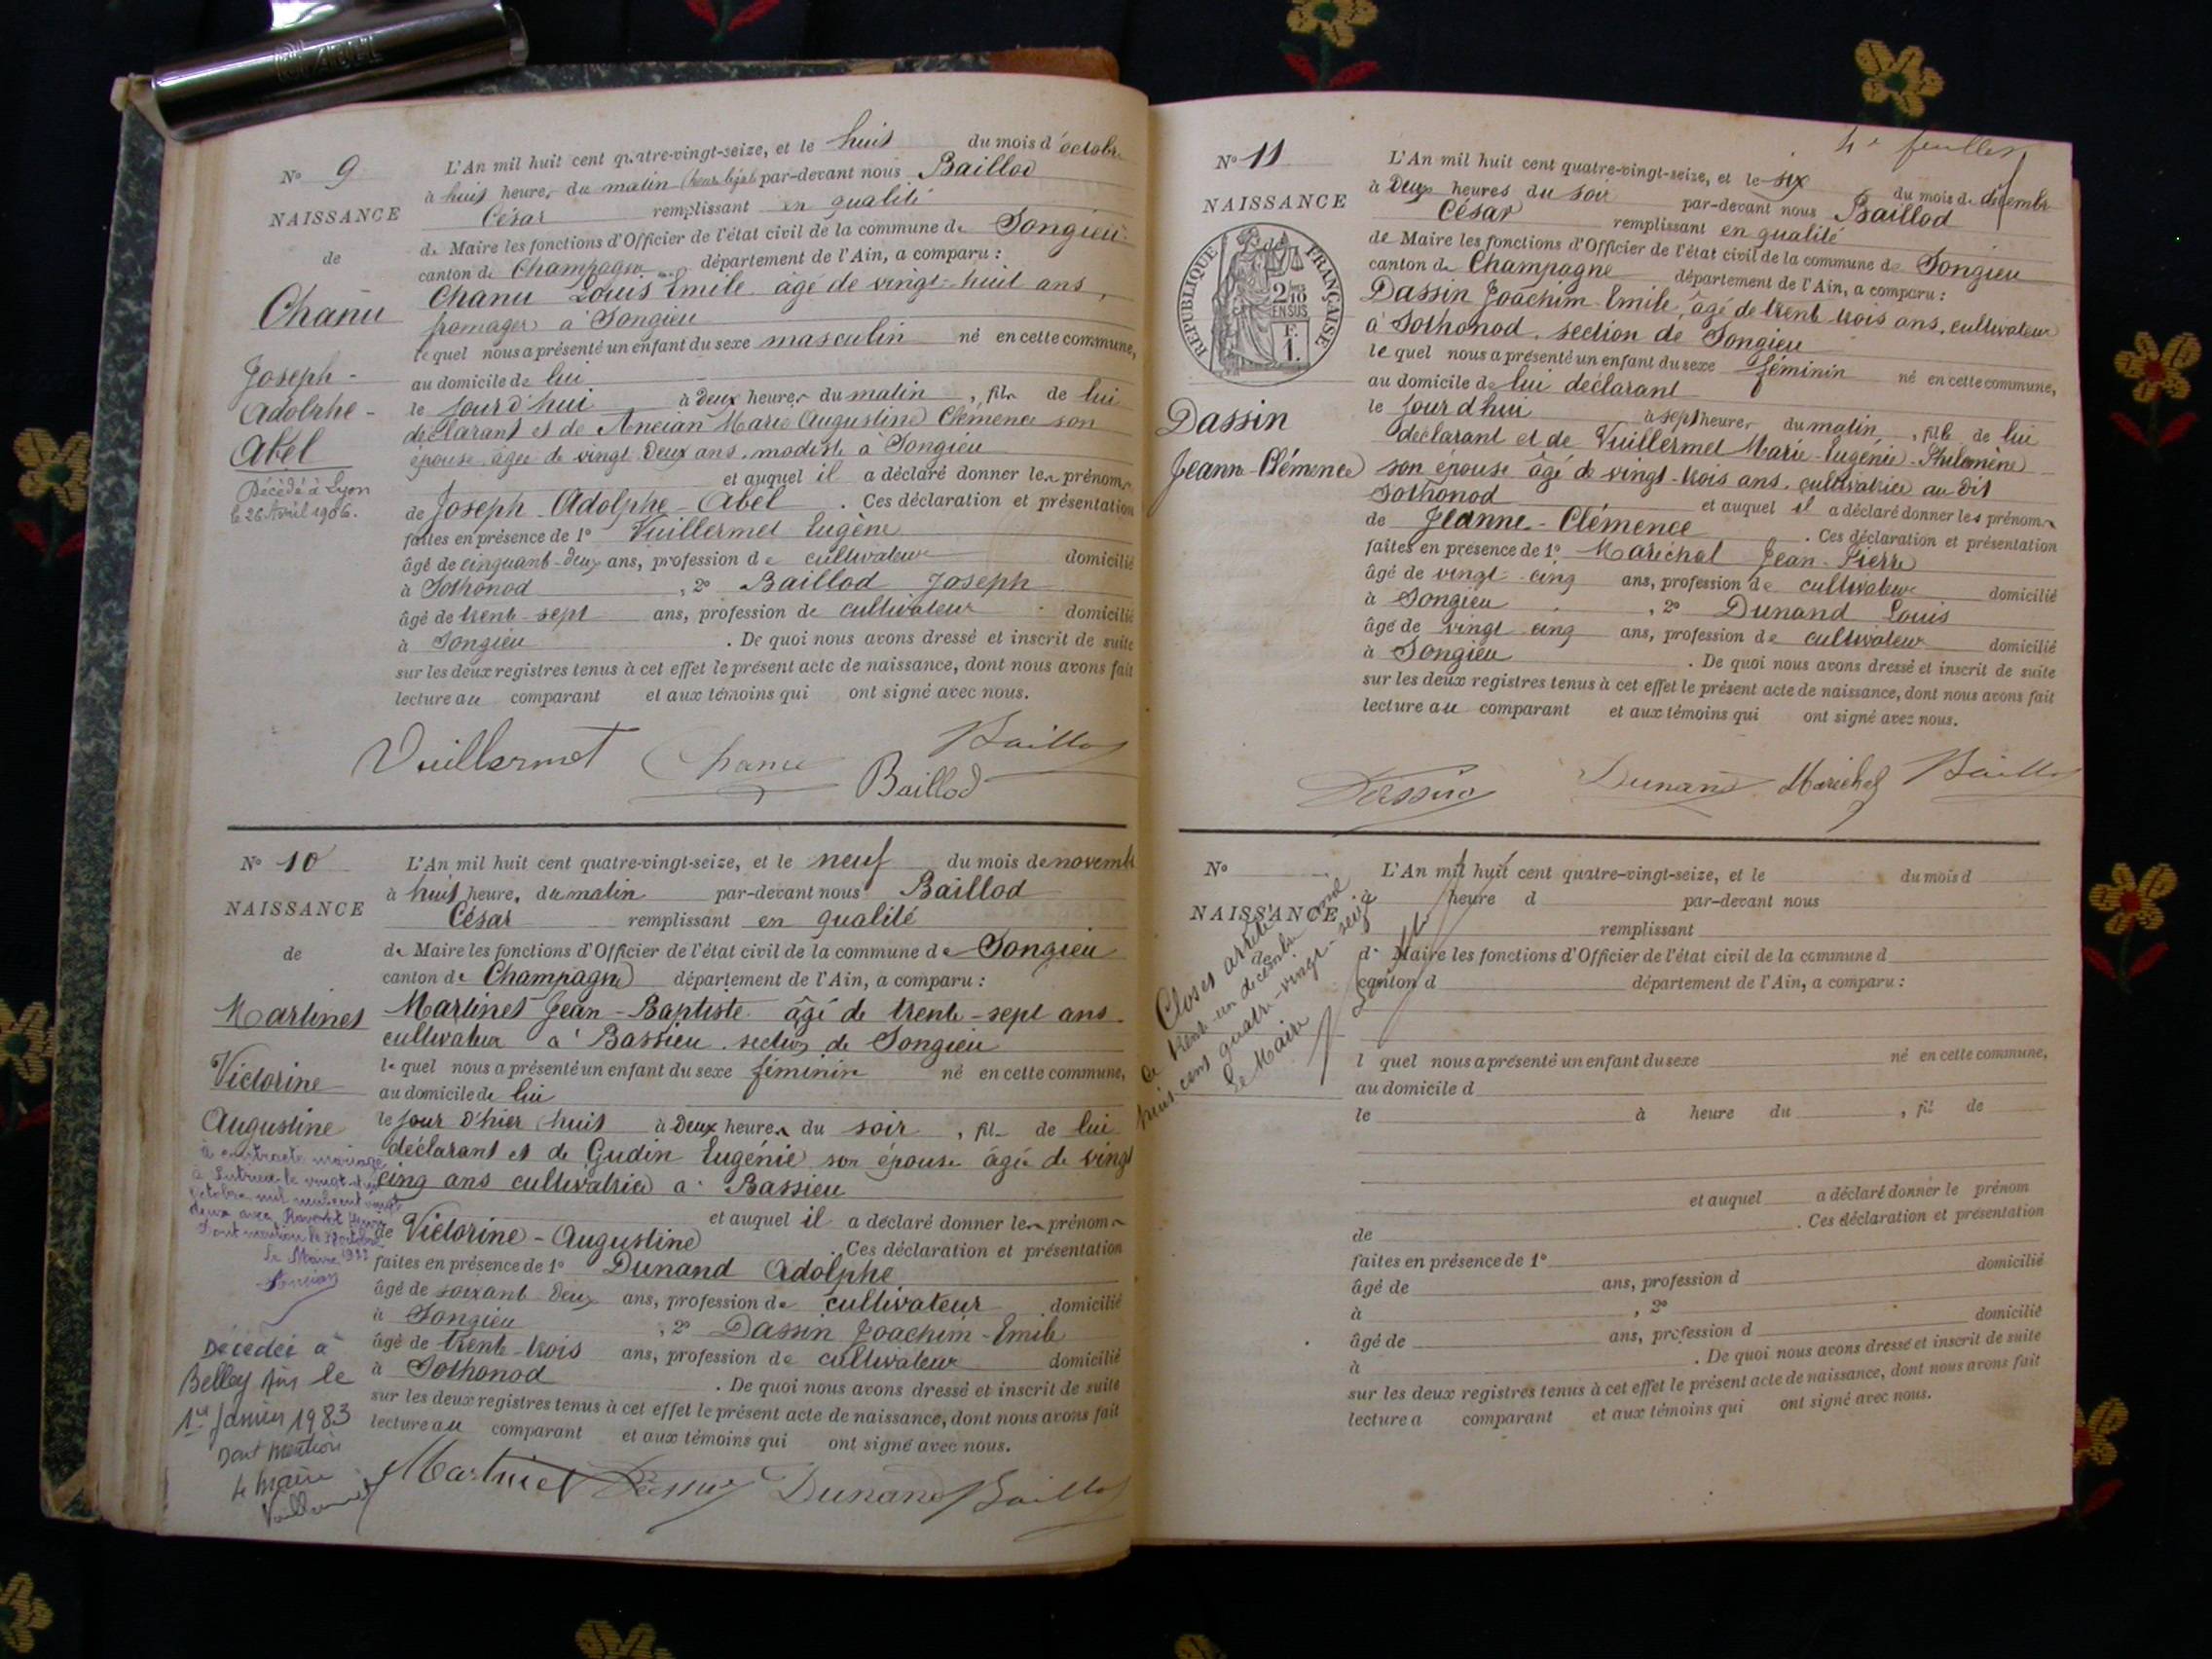 No 9
NAISSANCE
de
Chanu
Joseph-
Adolphe-
Abel
Décédé à Lyon
le 26 Avril 1906.
L'An mil huit cent quatre-vingt-seize, et le huit du mois d'octobre
à huit heures du matin (heure légale) par-devant nous Baillod
César remplissant en qualité
de Maire les fonctions d'Officier de l'état civil de la commune de Songieu
canton de Champagne département de l'Ain, a comparu :
Chanu Louis Emile âgé de vingt-huit ans,
fromager à Songieu
le quel nous a présenté un enfant du sexe masculin né en cette commune,
au domicile de lui
le jour d'hui à deux heures du matin, fils de lui
déclarant et de Ancian Marie Augustine Clémence son
épouse âgée de vingt deux ans, modiste à Songieu
et auquel il a déclaré donner les prénoms
de Joseph-Adolphe-Abel. Ces déclaration et présentation
faites en présence de 1° Vuillermet Eugène
âgé de cinquante-deux ans, profession de cultivateur domicilié
à Sothonod, 2° Baillod Joseph
âgé de trente-sept ans, profession de cultivateur domicilié
à Songieu. De quoi nous avons dressé et inscrit de suite
sur les deux registres tenus à cet effet le présent acte de naissance, dont nous avons fait
lecture au comparant et aux témoins qui ont signé avec nous.
Vuillermet Chanu Baillod
Baillod
No 10
NAISSANCE
de
Martinet
Victorine
Augustine
à contracté mariage
à Lutrieu le vingt-un
octobre mil neuf cent vingt
deux avec
Dont mention le octobre
1922
Le Maire
Décédée à
Belley Ain le
1er Janvier 1983
Dont mention
Le Maire
Vuillermet
L'An mil huit cent quatre-vingt-seize, et le neuf du mois de novembre
à huit heure, du matin par-devant nous Baillod
César remplissant en qualité
de Maire les fonctions d'Officier de l'état civil de la commune de Songieu
canton de Champagne département de l'Ain, a comparu :
Martinet Jean-Baptiste âgé de trente-sept ans
cultivateur à Bassieu, section de Songieu
le quel nous a présenté un enfant du sexe féminin né en cette commune,
au domicile de lui
le jour d'hier huit à deux heures du soir, fil de lui
déclarant et de Gudin Eugénie son épouse âgée de vingt
cinq ans cultivatrice à Bassieu
et auquel il a déclaré donner les prénoms
de Victorine-Augustine. Ces déclaration et présentation
faites en présence de 1° Dunand Adolphe
âgé de soixante deux ans, profession de cultivateur domicilié
à Songieu, 2° Dassin Joachim-Emile
âgé de trente-trois ans, profession de cultivateur domicilié
à Sothonod. De quoi nous avons dressé et inscrit de suite
sur les deux registres tenus à cet effet le présent acte de naissance, dont nous avons fait
lecture au comparant et aux témoins qui ont signé avec nous.
Martinet Dassin Dunand Baillod
4e feuillet
No 11
NAISSANCE
de
RÉPUBLIQUE FRANÇAISE
2/10 EN SUS
F. 1.
Dassin
Jeanne-Clémence
L'An mil huit cent quatre-vingt-seize, et le six du mois de décembre
à deux heures du soir par-devant nous Baillod
César remplissant en qualité
de Maire les fonctions d'Officier de l'état civil de la commune de Songieu
canton de Champagne département de l'Ain, a comparu :
Dassin Joachim-Emile, âgé de trente trois ans, cultivateur
à Sothonod, section de Songieu
le quel nous a présenté un enfant du sexe féminin né en cette commune,
au domicile de lui déclarant
le jour d'hui à sept heures du matin, fille de lui
déclarant et de Vuillermet Marie-Eugénie-Philomène
son épouse âgé de vingt-trois ans, cultivatrice au dit
Sothonod et auquel il a déclaré donner les prénoms
de Jeanne-Clémence. Ces déclaration et présentation
faites en présence de 1° Maréchal Jean-Pierre
âgé de vingt-cinq ans, profession de cultivateur domicilié
à Songieu, 2° Dunand Louis
âgé de vingt cinq ans, profession de cultivateur domicilié
à Songieu. De quoi nous avons dressé et inscrit de suite
sur les deux registres tenus à cet effet le présent acte de naissance, dont nous avons fait
lecture au comparant et aux témoins qui ont signé avec nous.
Dassin Dunand Maréchal Baillod
No
NAISSANCE
de
Closes arrêté
ce trente-un décembre mil
huit cent quatre-vingt-seize
Le Maire
L'An mil huit cent quatre-vingt-seize, et le du mois d
à heure d par-devant nous
remplissant
d Maire les fonctions d'Officier de l'état civil de la commune d
canton d département de l'Ain, a comparu :
l quel nous a présenté un enfant du sexe né en cette commune,
au domicile d
le à heure du, fil de
et auquel a déclaré donner le prénom
de. Ces déclaration et présentation
faites en présence de 1° domicilié
âgé de ans, profession d
à, 2° domicilié
âgé de ans, profession d
à. De quoi nous avons dressé et inscrit de suite
sur les deux registres tenus à cet effet le présent acte de naissance, dont nous avons fait
lecture a comparant et aux témoins qui ont signé avec nous.